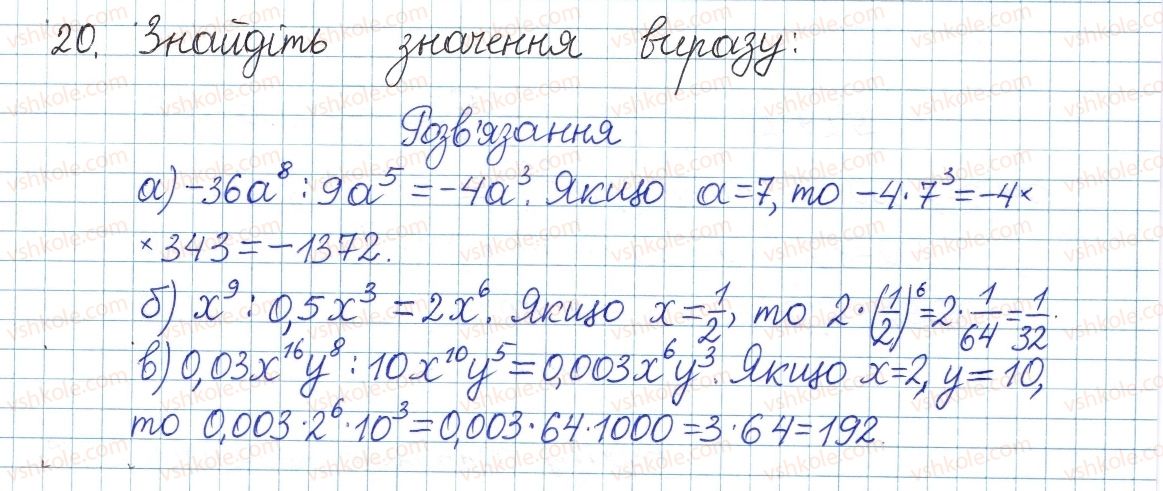 20. Знайдіть значення виразу:
Розв'язання
а) -36a⁸ : 9a⁵ = -4a³. Якщо a=7, то -4·7³ = -4×
×343 = -1372.
б) x⁹ : 0,5x³ = 2x⁶. Якщо x = 1/2, то 2·(1/2)⁶ = 2·1/64 = 1/32.
в) 0,03x¹⁶y⁸ : 10x¹⁰y⁵ = 0,003x⁶y³. Якщо x=2, y=10,
то 0,003·2⁶·10³ = 0,003·64·1000 = 3·64 = 192.